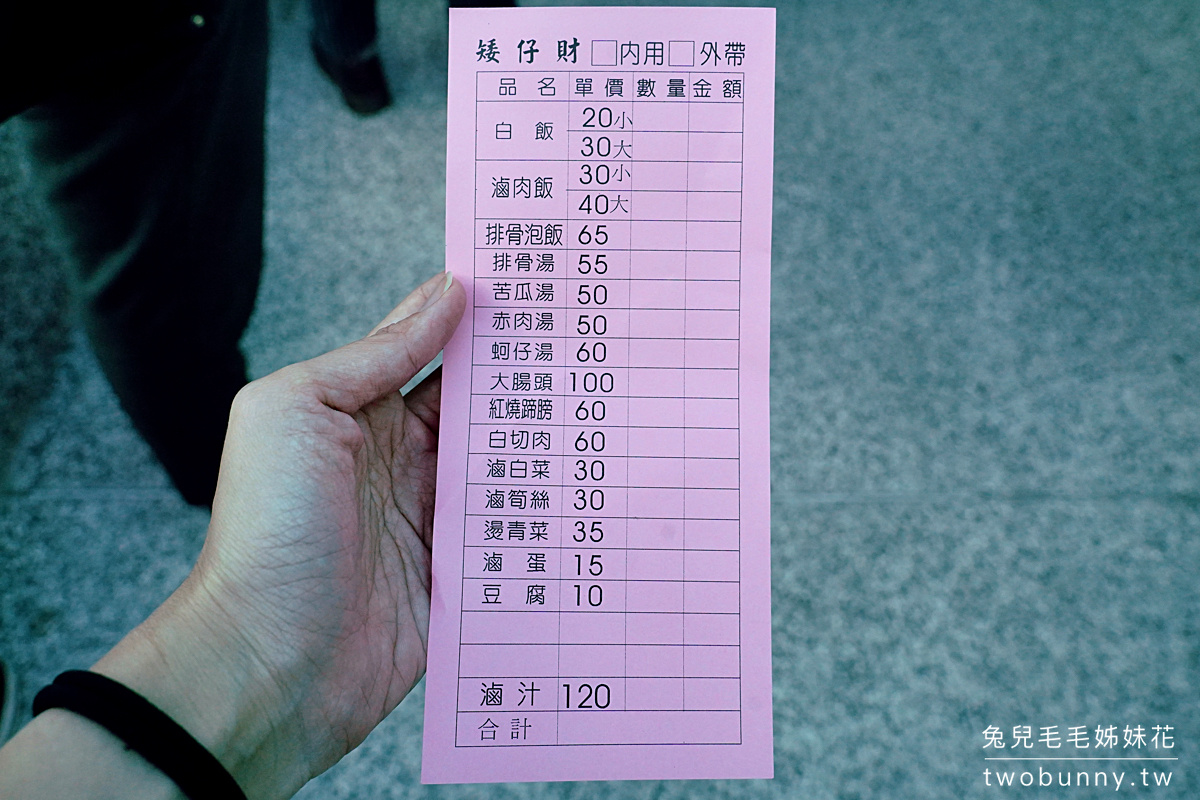 矮仔財 □內用□外帶
品名 單價 數量 金額
白飯 20小
30大
滷肉飯 30小
40大
排骨泡飯 65
排骨湯 55
苦瓜湯 50
赤肉湯 50
蚵仔湯 60
大腸頭 100
紅燒蹄膀 60
白切肉 60
滷白菜 30
滷筍絲 30
燙青菜 35
滷蛋 15
豆腐 10
滷汁 120
合計
兔兒毛毛姊妹花
twobunny.tw